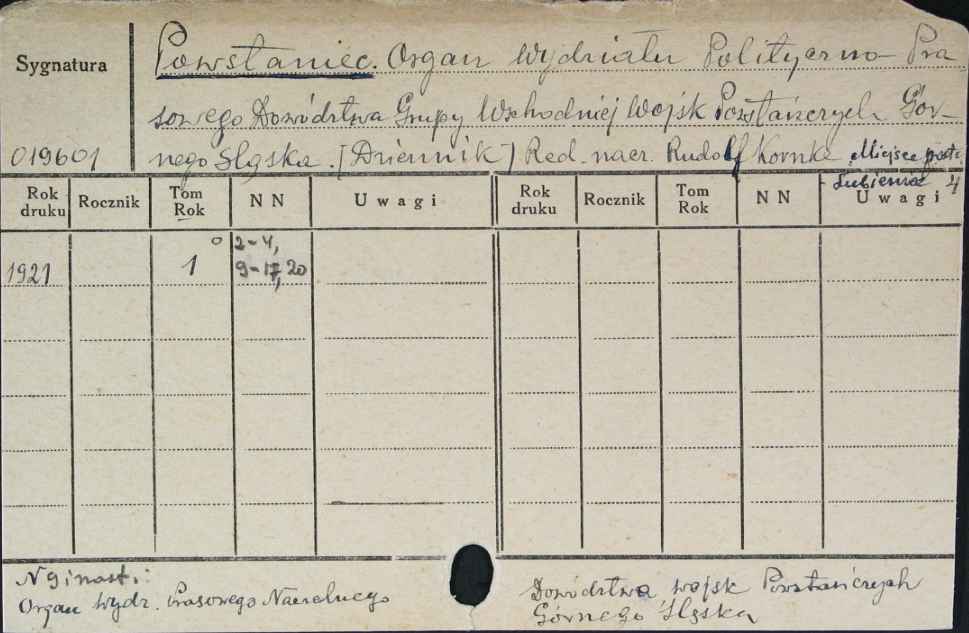 Sygnatura
Powstaniec. Organ Wydziału Polityczno-Pra
sowego Dowództwa Grupy Wschodniej Wojsk Powstańczych Gór-
019601
nego Śląska. [Dziennik] Red. nacz. Rudolf Kornke Miejsce post.
Lubieniec
Rok druku Rocznik Tom Rok NN Uwagi Rok druku Rocznik Tom Rok NN Uwagi
2-4,
1921 1 9-17, 20
N 9 i nast.:
Organ Wydz. Prasowego Naczelnego Dowództwa wojsk Powstańczych
Górnego Śląska